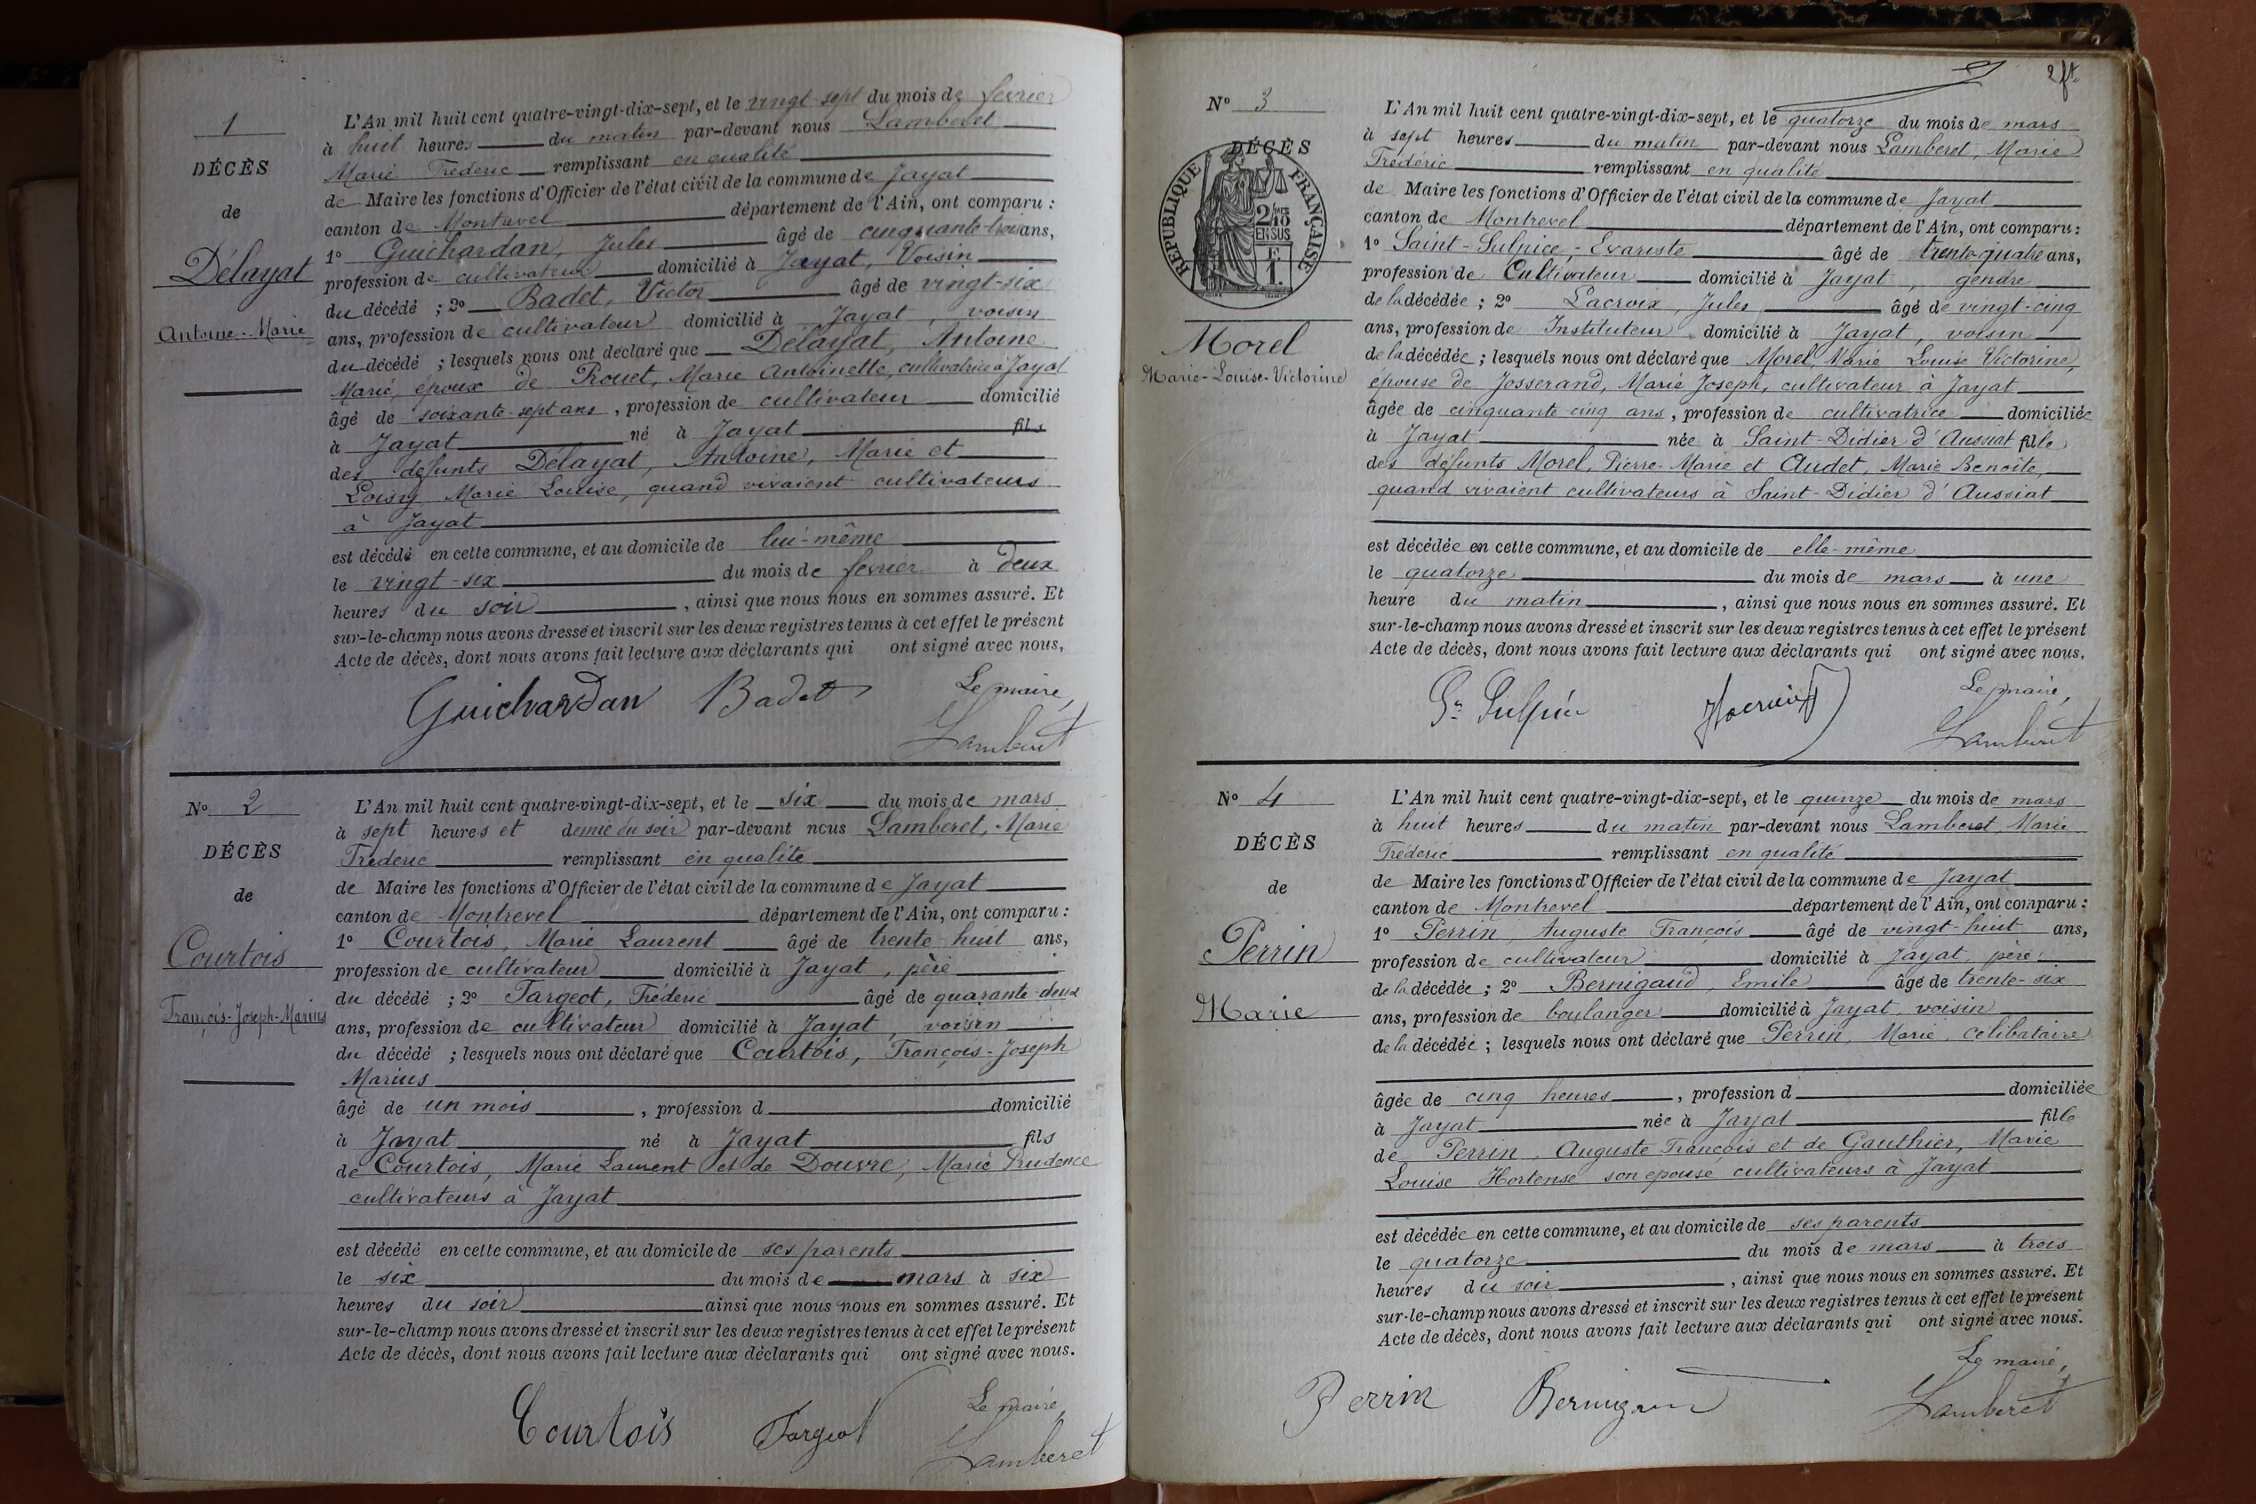 1
DÉCÈS
de
Délayat
Antoine-Marie
L'An mil huit cent quatre-vingt-dix-sept, et le vingt-sept du mois de fevrier
à huit heures du matin par-devant nous Lamberet
Marie Fréderic remplissant en qualité
de Maire les fonctions d'Officier de l'état civil de la commune de Jayat
canton de Montrevel département de l'Ain, ont comparu :
1º Guichardan, Jules âgé de cinquante-trois ans,
profession de cultivateur domicilié à Jayat, Voisin
du décédé ; 2º Badet, Victor âgé de vingt-six
ans, profession de cultivateur domicilié à Jayat, voisin
du décédé ; lesquels nous ont déclaré que Délayat, Antoine
Marie, époux de Prouet, Marie Antoinette, cultivatrice à Jayat
âgé de soixante-sept ans, profession de cultivateur domicilié
à Jayat né à Jayat fils
des défunts Délayat, Antoine, Marie et
Loisy Marie Louise, quand vivaient cultivateurs
à Jayat
est décédé en cette commune, et au domicile de lui-même
le vingt-six du mois de fevrier à deux
heures du soir, ainsi que nous nous en sommes assuré. Et
sur-le-champ nous avons dressé et inscrit sur les deux registres tenus à cet effet le présent
Acte de décès, dont nous avons fait lecture aux déclarants qui ont signé avec nous.
Guichardan Badet Le maire,
Lamberet
Nº 2
DÉCÈS
de
Courtois
François-Joseph-Marius
L'An mil huit cent quatre-vingt-dix-sept, et le six du mois de mars
à sept heures et demie du soir par-devant nous Lamberet, Marie
Fréderic remplissant en qualité
de Maire les fonctions d'Officier de l'état civil de la commune de Jayat
canton de Montrevel département de l'Ain, ont comparu :
1º Courtois, Marie Laurent âgé de trente-huit ans,
profession de cultivateur domicilié à Jayat, père
du décédé ; 2º Fargeot, Fréderic âgé de quarante-deux
ans, profession de cultivateur domicilié à Jayat, voisin
du décédé ; lesquels nous ont déclaré que Courtois, François-Joseph
Marius
âgé de un mois, profession d domicilié
à Jayat né à Jayat fils
de Courtois, Marie Laurent et de Douvre, Marie Prudence
cultivateurs à Jayat
est décédé en cette commune, et au domicile de ses parents
le six du mois de mars à six
heures du soir ainsi que nous nous en sommes assuré. Et
sur-le-champ nous avons dressé et inscrit sur les deux registres tenus à cet effet le présent
Acte de décès, dont nous avons fait lecture aux déclarants qui ont signé avec nous.
Courtois Fargeot Le maire
Lamberet
2 ft.
Nº 3
DÉCÈS
RÉPUBLIQUE FRANÇAISE
2/10 EN SUS
F
1.
Morel
Marie-Louise-Victorine
L'An mil huit cent quatre-vingt-dix-sept, et le quatorze du mois de mars
à sept heures du matin par-devant nous Lamberet, Marie
Fréderic remplissant en qualité
de Maire les fonctions d'Officier de l'état civil de la commune de Jayat
canton de Montrevel département de l'Ain, ont comparu :
1º Saint-Sulpice, Evariste âgé de trente-quatre ans,
profession de Cultivateur domicilié à Jayat, gendre
de la décédée ; 2º Lacroix, Jules âgé de vingt-cinq
ans, profession de Instituteur domicilié à Jayat, voisin
de la décédée ; lesquels nous ont déclaré que Morel, Marie Louise Victorine,
épouse de Josserand, Marie Joseph, cultivateur à Jayat
âgée de cinquante cinq ans, profession de cultivatrice domiciliée
à Jayat née à Saint-Didier d'Aussiat fille
des défunts Morel, Pierre-Marie et Audet, Marie Benoîte,
quand vivaient cultivateurs à Saint-Didier d'Aussiat
est décédée en cette commune, et au domicile de elle-même
le quatorze du mois de mars à une
heure du matin, ainsi que nous nous en sommes assuré. Et
sur-le-champ nous avons dressé et inscrit sur les deux registres tenus à cet effet le présent
Acte de décès, dont nous avons fait lecture aux déclarants qui ont signé avec nous.
Le maire,
Lamberet
Nº 4
DÉCÈS
de
Perrin
Marie
L'An mil huit cent quatre-vingt-dix-sept, et le quinze du mois de mars
à huit heures du matin par-devant nous Lamberet Marie
Fréderic remplissant en qualité
de Maire les fonctions d'Officier de l'état civil de la commune de Jayat
canton de Montrevel département de l'Ain, ont comparu :
1º Perrin, Auguste François âgé de vingt-huit ans,
profession de cultivateur domicilié à Jayat, père
de la décédée ; 2º Bernigaud, Emile âgé de trente-six
ans, profession de boulanger domicilié à Jayat, voisin
de la décédée ; lesquels nous ont déclaré que Perrin, Marie, célibataire
âgée de cinq heures, profession d domiciliée
à Jayat née à Jayat fille
de Perrin, Auguste François et de Gauthier, Marie
Louise Hortense son epouse cultivateurs à Jayat
est décédée en cette commune, et au domicile de ses parents
le quatorze du mois de mars à trois
heures du soir, ainsi que nous nous en sommes assuré. Et
sur-le-champ nous avons dressé et inscrit sur les deux registres tenus à cet effet le présent
Acte de décès, dont nous avons fait lecture aux déclarants qui ont signé avec nous.
Le maire,
Perrin Bernigaud Lamberet